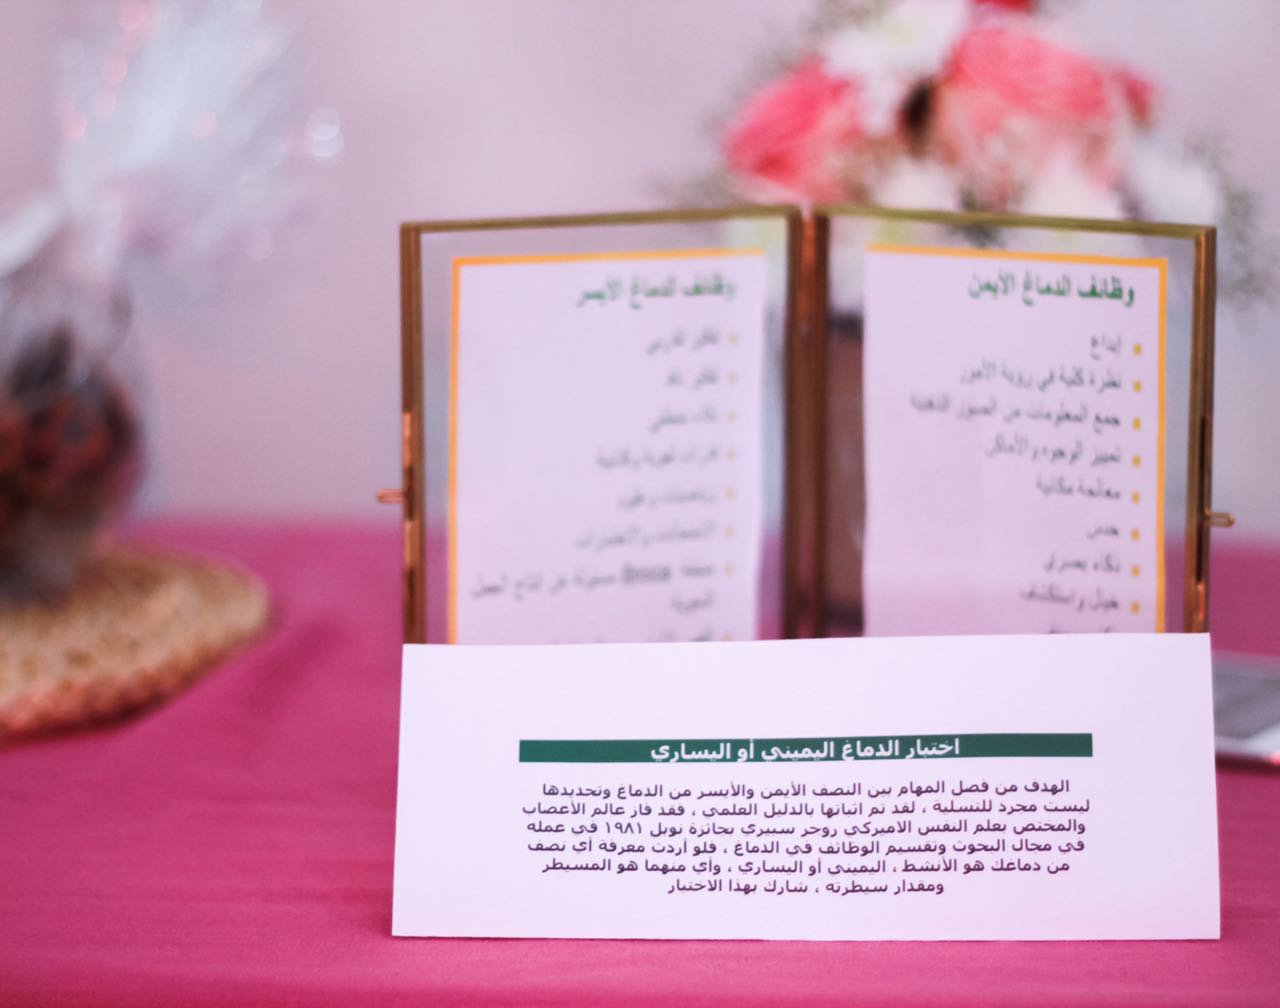 وظائف الدماغ الأيمن
إبداع
نظرة كلية في رؤية الأمور
جمع المعلومات من الصور الذهنية
تمييز الوجوه والأماكن
معالجة مكانية
حدس
ذكاء بصري
خيال واستكشاف
وظائف الدماغ الأيسر
تفكير ناقد
قدرات لغوية وكتابية
منطقة Broca مسئولة عن انتاج الجمل
اختبار الدماغ اليميني أو اليساري
الهدف من فصل المهام بين النصف الأيمن والأيسر من الدماغ وتحديدها
ليست مجرد للتسلية ، لقد تم اثباتها بالدليل العلمي ، فقد فاز عالم الأعصاب
والمختص بعلم النفس الاميركي روجر سبيري بجائزة نوبل ١٩٨١ في عمله
في مجال البحوث وتقسيم الوظائف في الدماغ ، فلو أردت معرفة أي نصف
من دماغك هو الأنشط ، اليميني أو اليساري ، وأي منهما هو المسيطر
ومقدار سيطرته ، شارك بهذا الاختبار